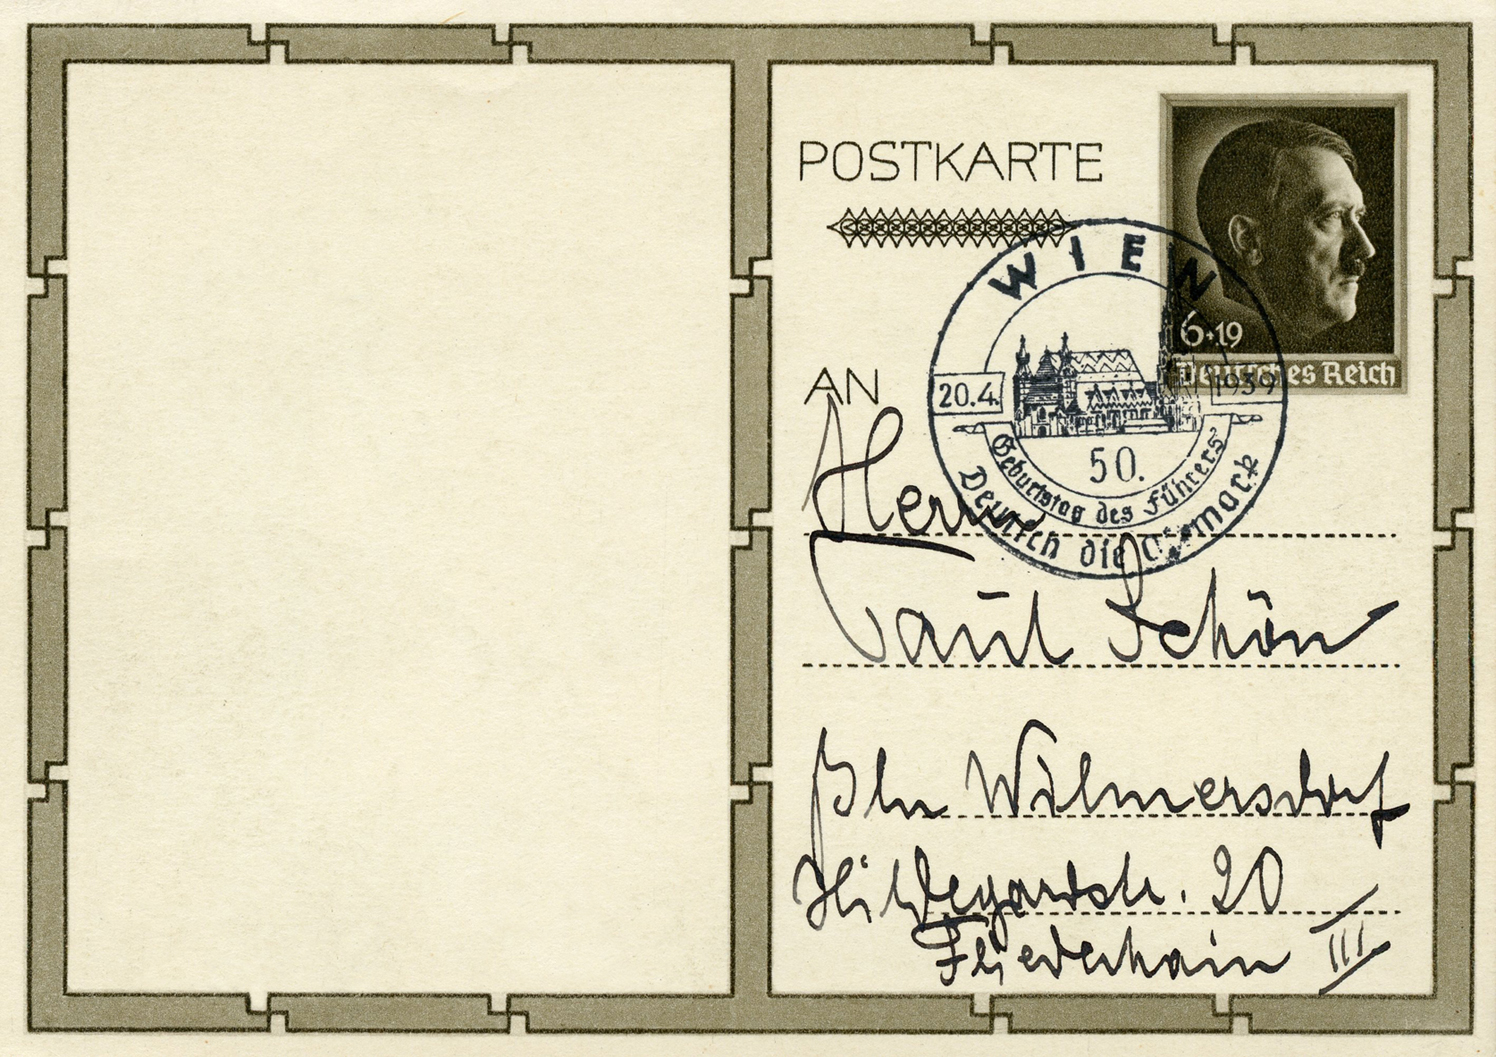 POSTKARTE
6+19
Deutsches Reich
WIEN
20.4. 1939
50.
Geburtstag des Führers
Deutsch die Ostmark
AN
Herrn
Paul Schön
Bln Wilmersdorf
Hildegardstr. 20
III